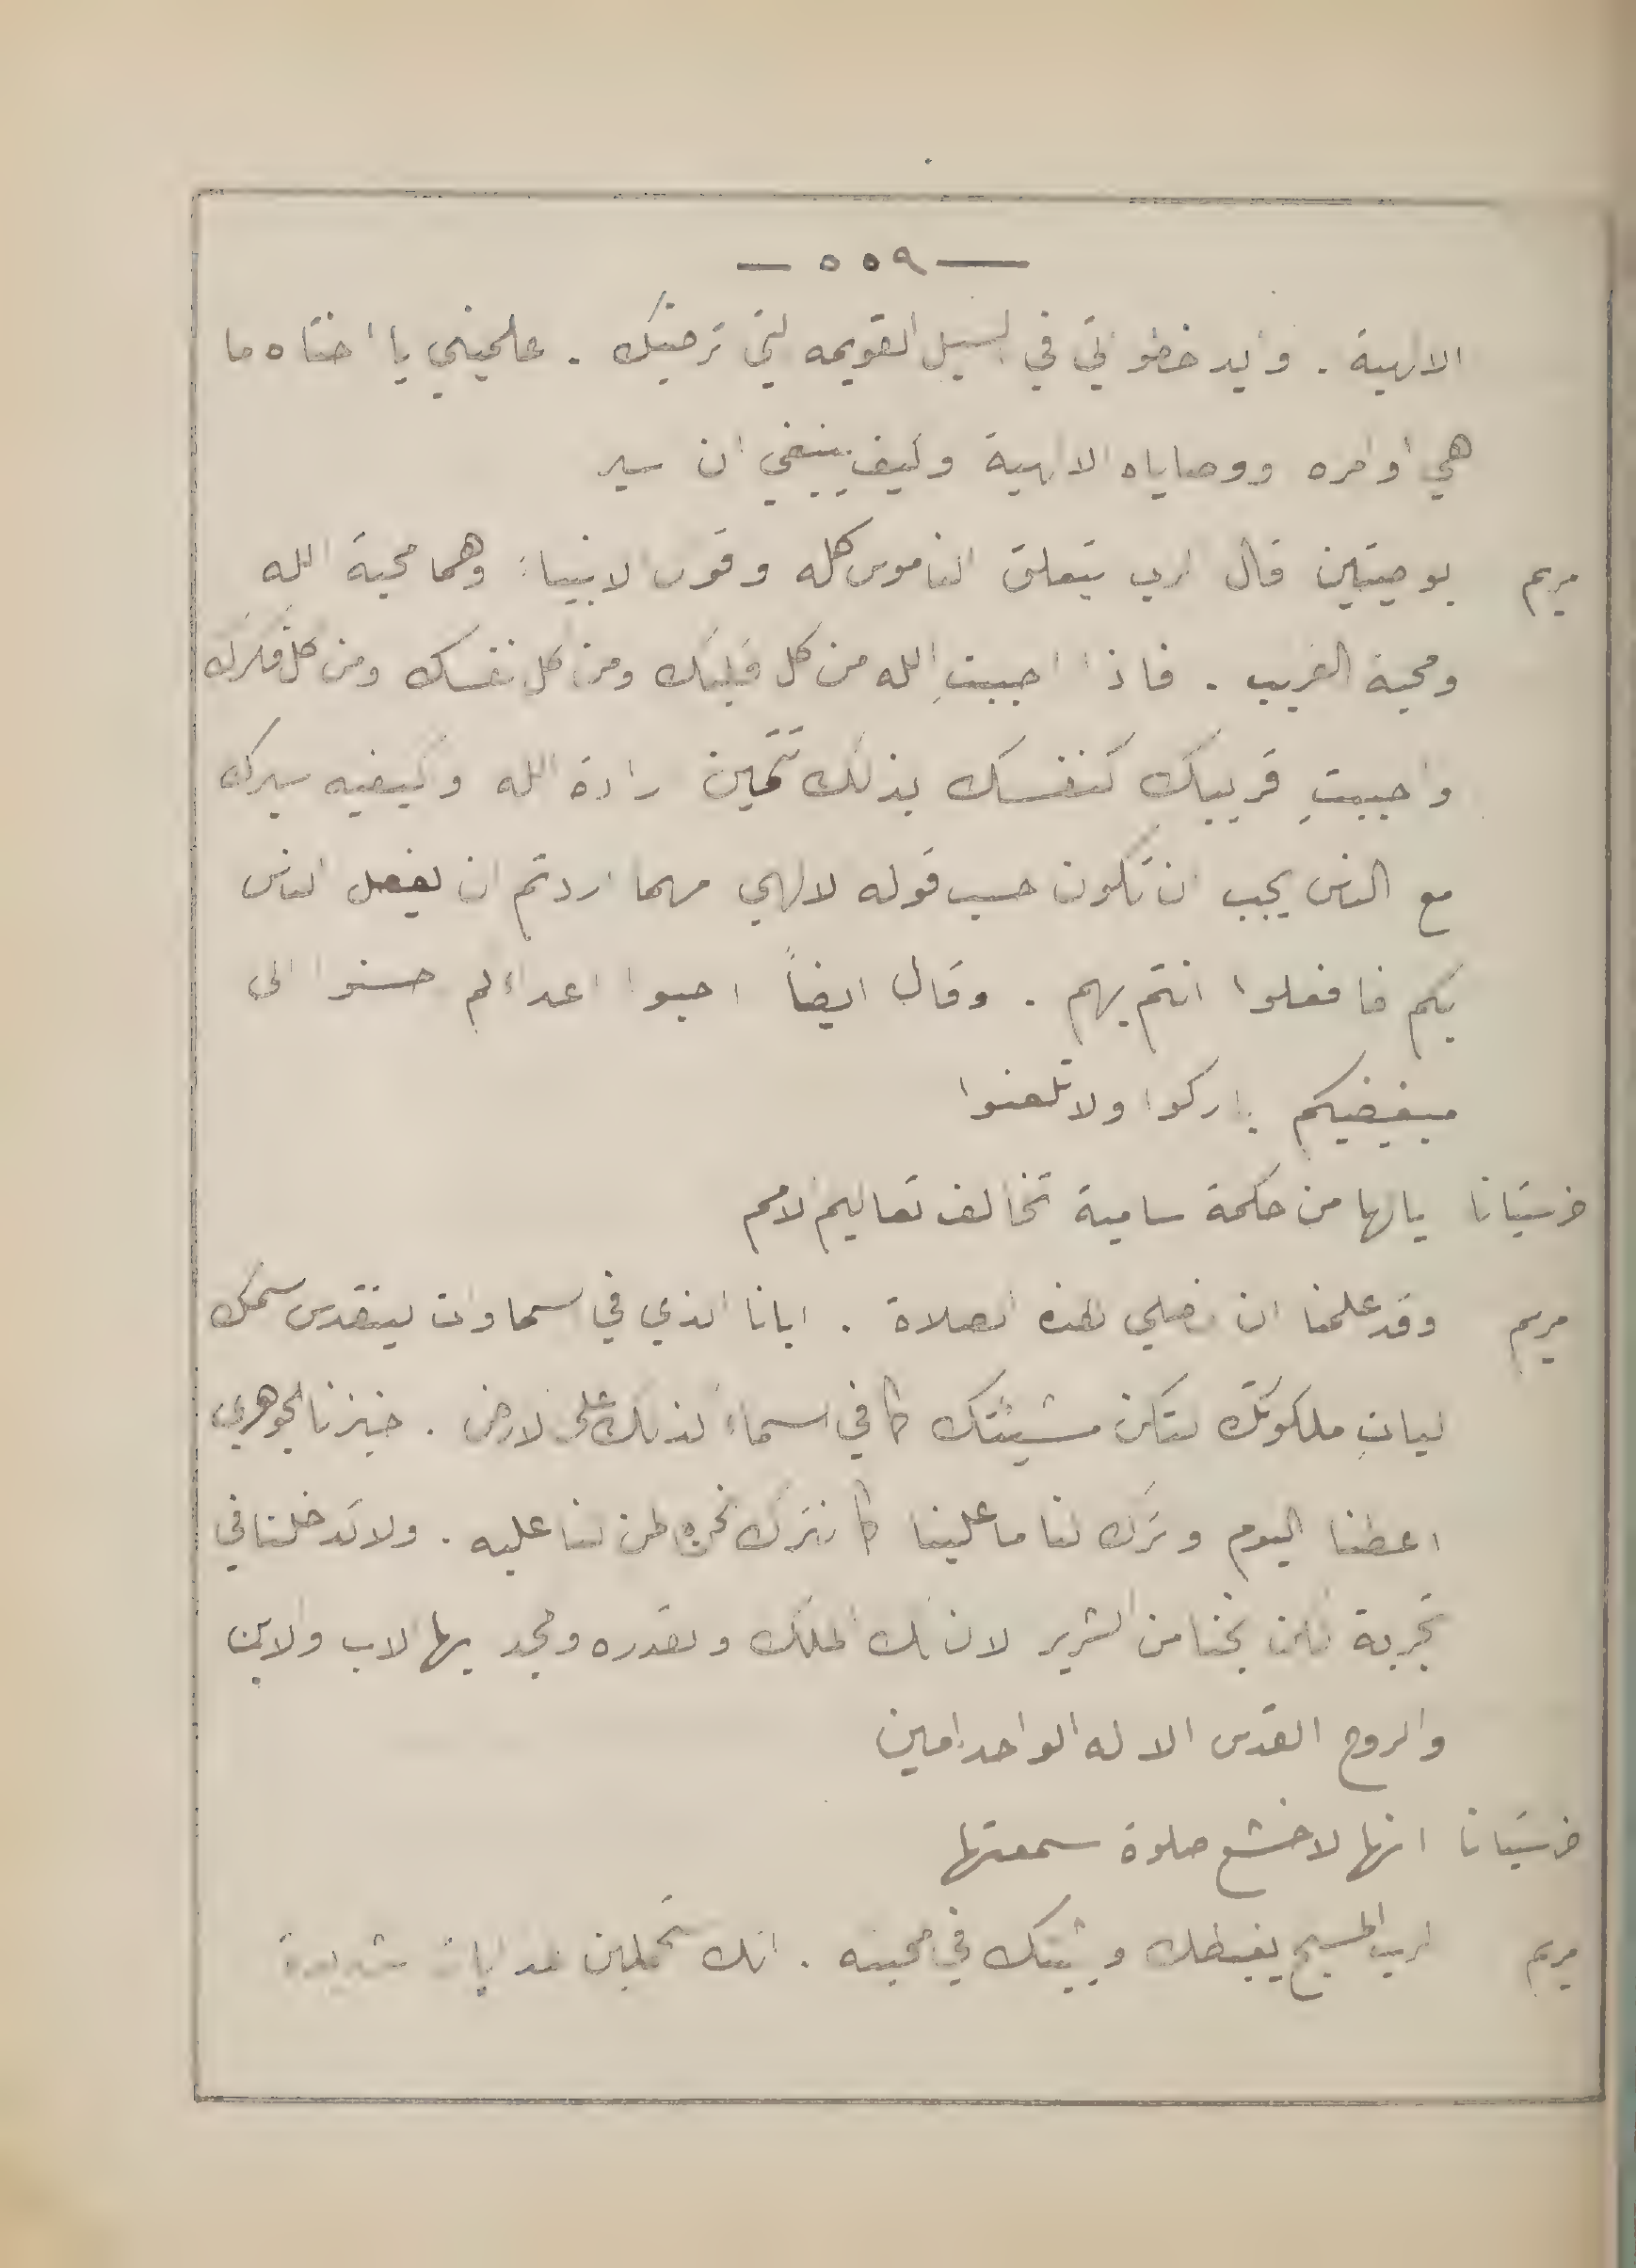 — ٥٥٩ —
الالهية . وايد خطواتي في السبيل القويمه التي ترضيك . علميني يا اختاه ما
هي اوامره ووصاياه الالهية وكيف ينبغي ان اسير
مريم بوصيتين قال الرب يتعلق الناموس كله واقوال الانبياء وهما محبة الله
ومحبة القريب . فاذا احببتِ الله من كل قلبك ومن كل نفسك ومن كل فكرك
واحببتِ قريبكِ كنفسك بذلك تتممين ارادة الله وكيفيه سيرك
مع الناس يجب ان تكون حسب قوله الالهي مهما اردتم ان يفعل الناس
بكم فافعلوا انتم بهم . وقال ايضاً احبوا اعداءكم احسنوا الى
مبغضيكم باركوا ولا تلعنوا
خرستيانا يالها من حكمة سامية تخالف تعاليم الامم
مريم وقد علمنا ان نصلي هذه الصلاة . ابانا الذي في السماوات ليتقدس اسمك
ليات ملكوتك لتكن مشيئتك كما في السماء كذلك على الارض . خبزنا الجوهري
اعطنا اليوم واترك لنا ما علينا كما نترك نحن لمن لنا عليه . ولا تدخلنا في
تجربة لكن نجنا من الشرير لان لك الملك والقدره والمجد ايها الاب والابن
والروح القدس الاله الواحد امين
خرستيانا انها لاخشع صلوة سمعتها
مريم الرب المسيح يغبطك ويثبتك في محبته . انك تحتملين عذابات شديدة